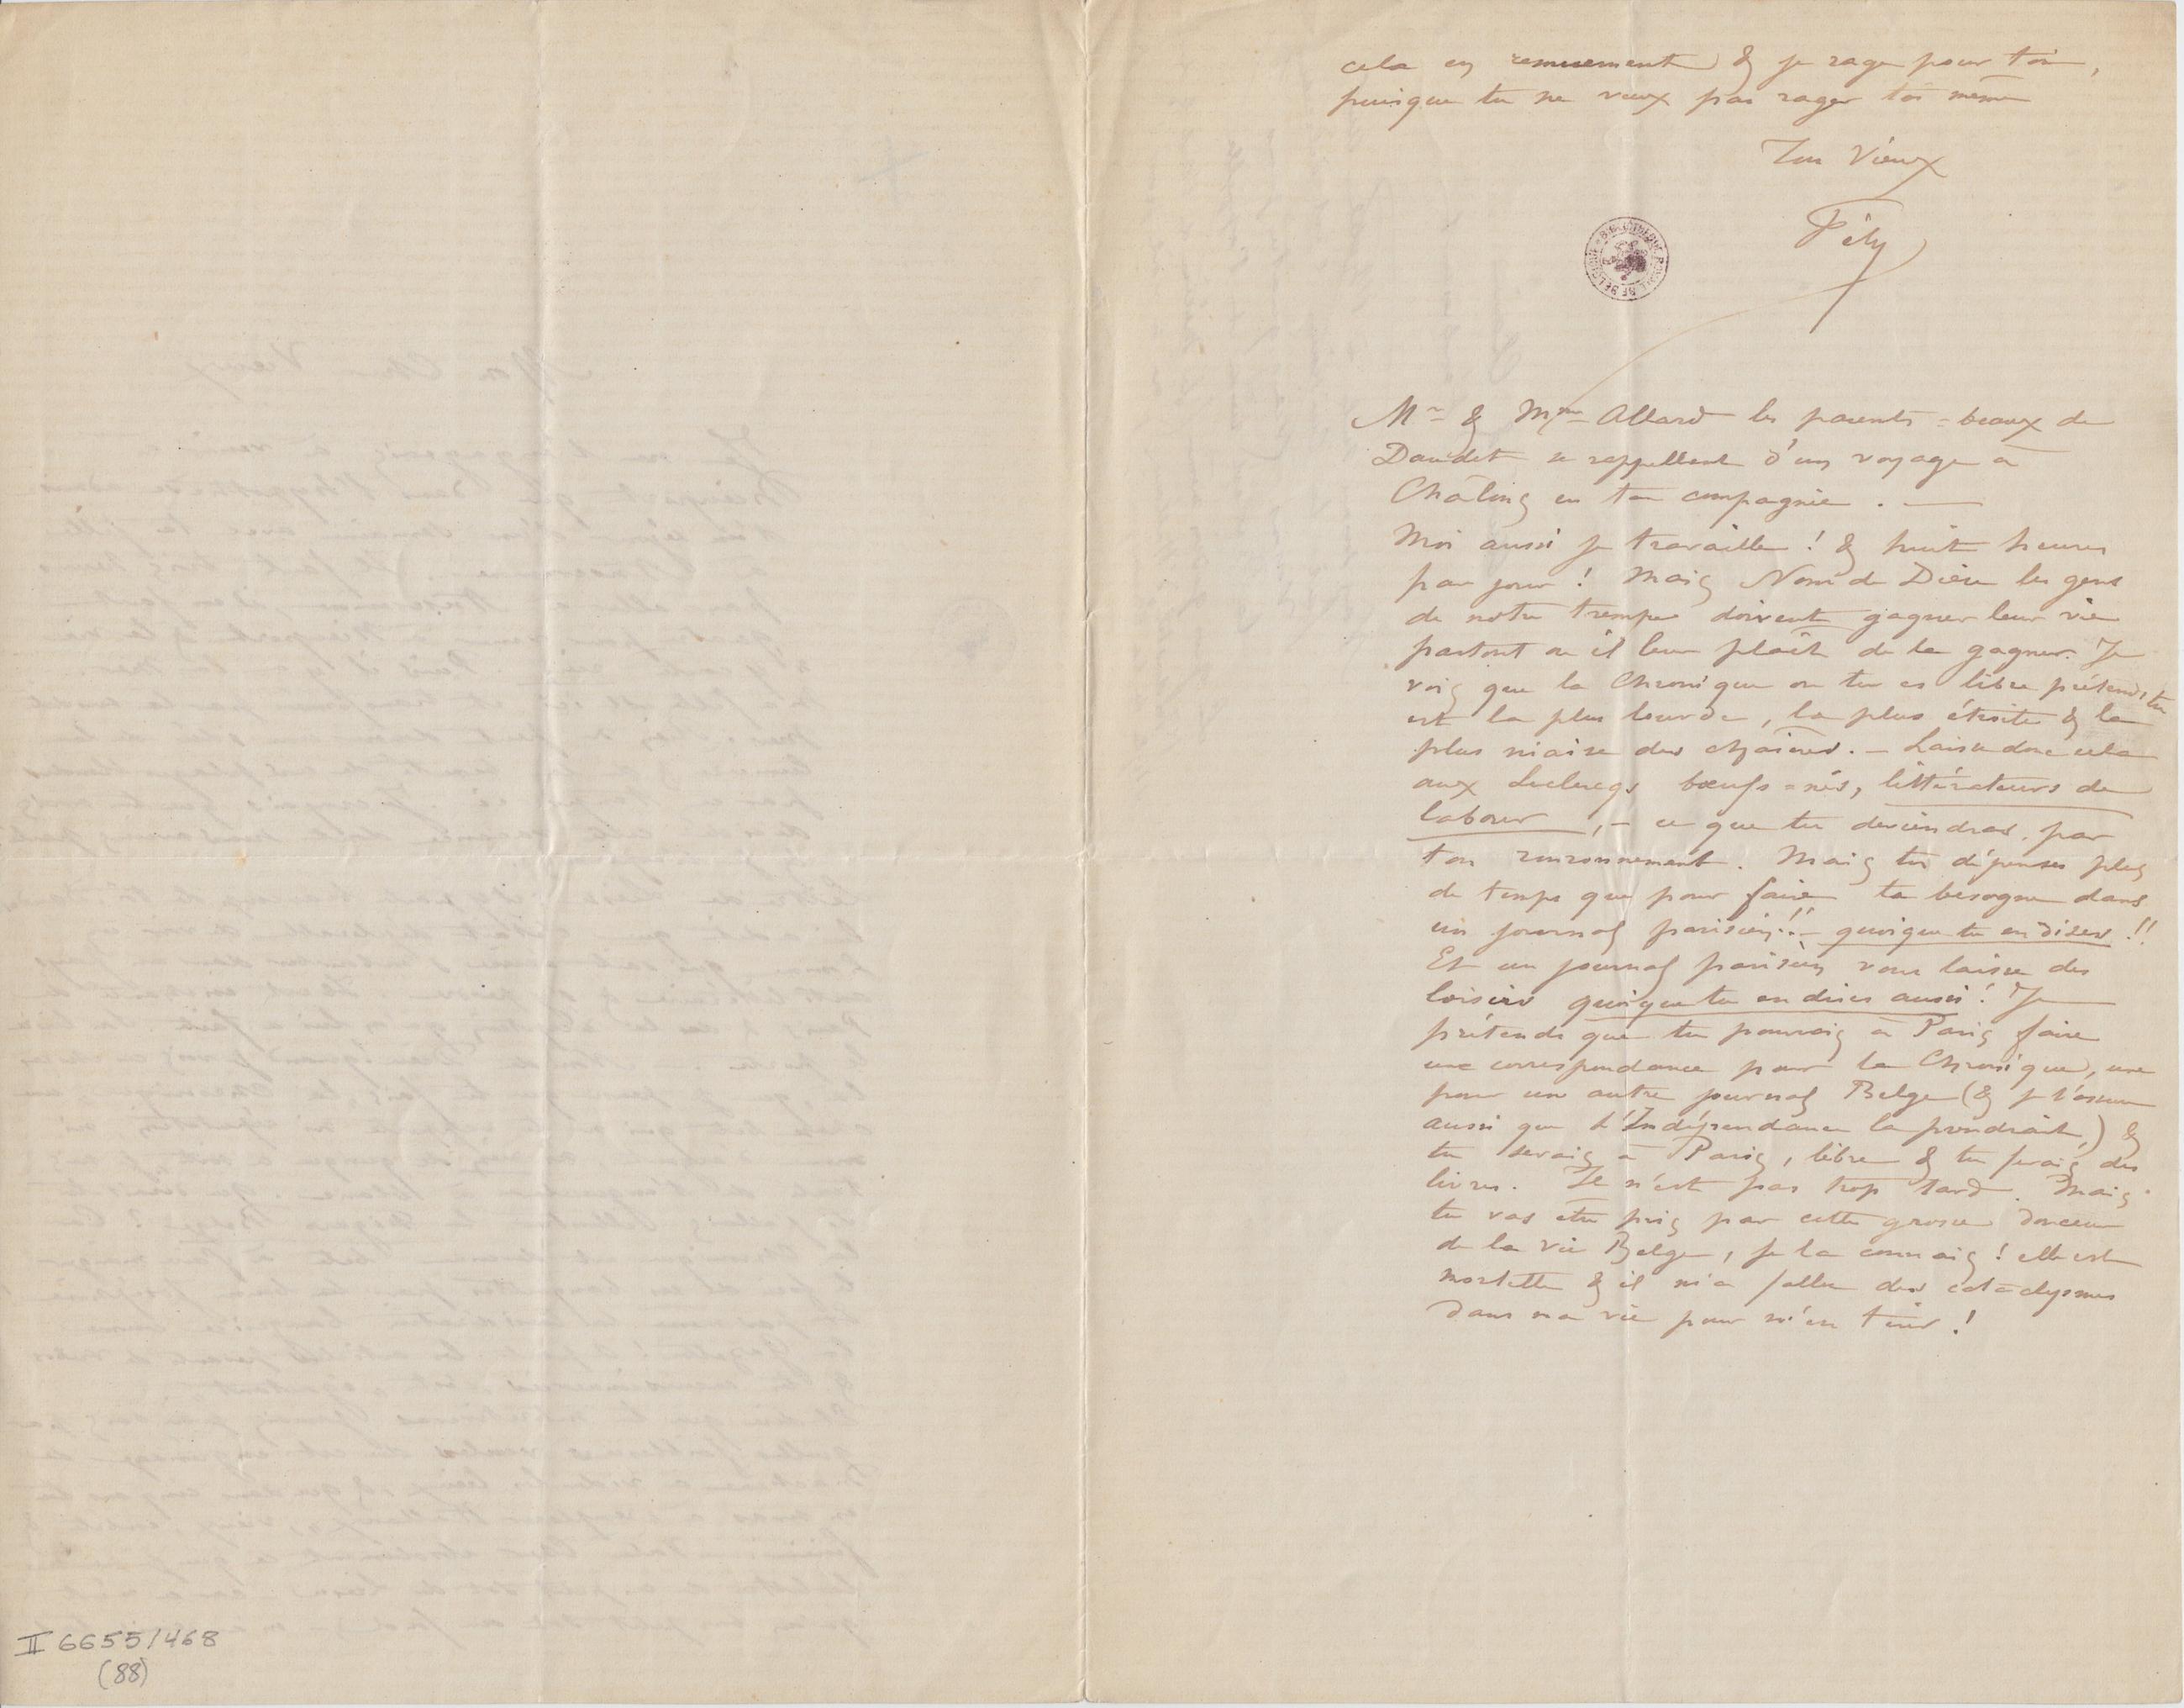 cela en remuement & je rage pour toi,
puisque tu ne veux pas rager toi même
Ton Vieux
Fély
BIBLIOTHEQUE ROYALE DE BELGIQUE
Mr & Mme Allard les parents-beaux de
Daudet se rappellent d'un voyage à
Châlons en ta compagnie. —
Moi aussi je travaille ! & huit heures
par jour ! Mais Nom de Dieu les gens
de notre trempe doivent gagner leur vie
partout ou il leur plaît de la gagner. Je
vois que la Chronique ou tu es libre prétends tu
est la plus lourde, la plus étroite & la
plus niaise des chaînes. – Laisse donc cela
aux Leclercqs bœufs-nés, littérateurs de
labour, – ce que tu deviendras, par
ton ronronnement. Mais tu dépenses plus
de temps que pour faire ta besogne dans
un journal parisien !! – quoique tu en dises !!
Et un journal parisien vous laisse des
loisirs quoique tu en dises aussi ! Je
prétends que tu pourrais à Paris faire
une correspondance pour la Chronique, une
pour un autre journal Belge (& je t'assure
aussi que L'Indépendance la prendrait,) &
tu serais à Paris, libre & tu ferais des
livres. Il n'est pas trop tard. Mais
tu vas être pris par cette grosse douceur
de la vie Belge, je la connais ! elle est
mortelle & il m'a fallu des cataclysmes
dans ma vie pour m'en tirer !
II 6655/468
(88)